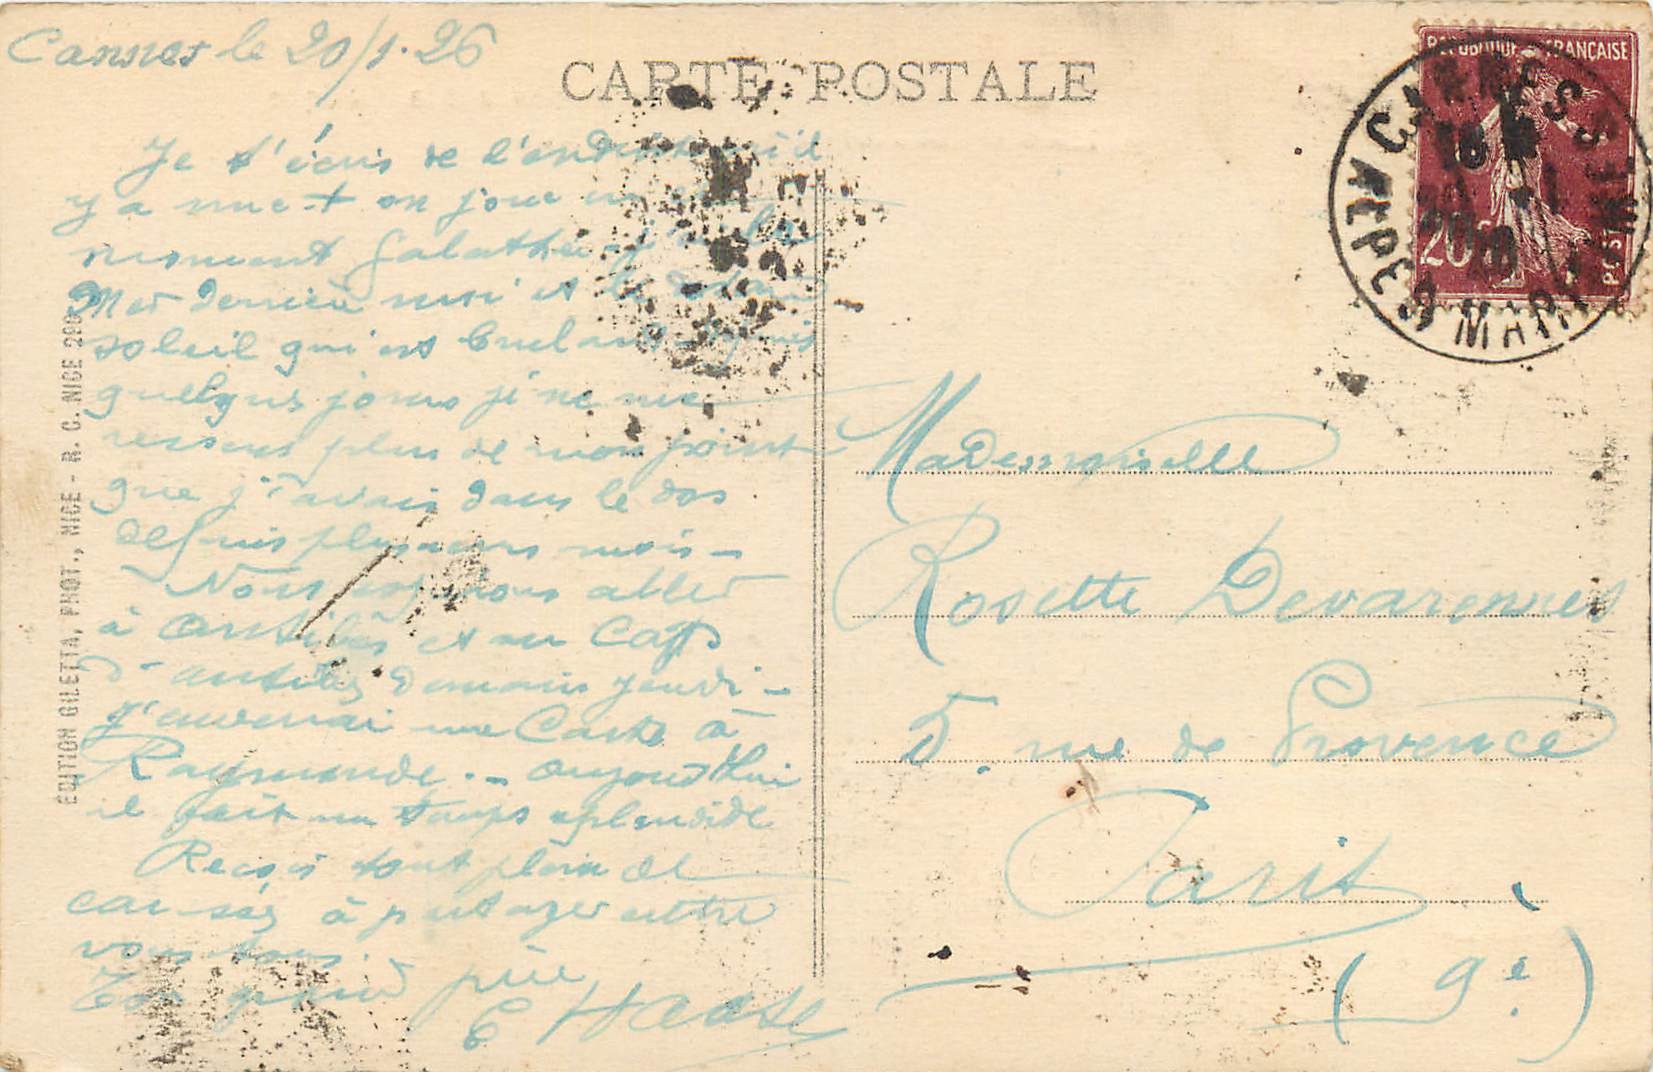 Cannes le 20/1.26
CARTE POSTALE
REPUBLIQUE FRANÇAISE
20
POSTES
CANNES
ALPES MARITIMES
Je t'écris de l'endroit où il
y a un on joue en
moment Galathée j'ai la
Mer derrière moi et le
soleil qui est brulant depuis
quelques jours je ne me
ressens plus de mon point
que j'avais dans le dos
depuis plusieurs mois -
Nous espérons aller
à Antibes et au Cap
d'antibes demain jeudi -
J'enverrai une Carte à
Raymonde. - aujourd'hui
il fait un temps splendide
Reçois tout plein de
caresses à partager entre
vous tous.
Ton grand père
E Haase
Mademoiselle
Rosette Devarennes
5. rue de Provence
Paris
(9e)
EDITION GILETTA, PHOT., NICE - R. C. NICE